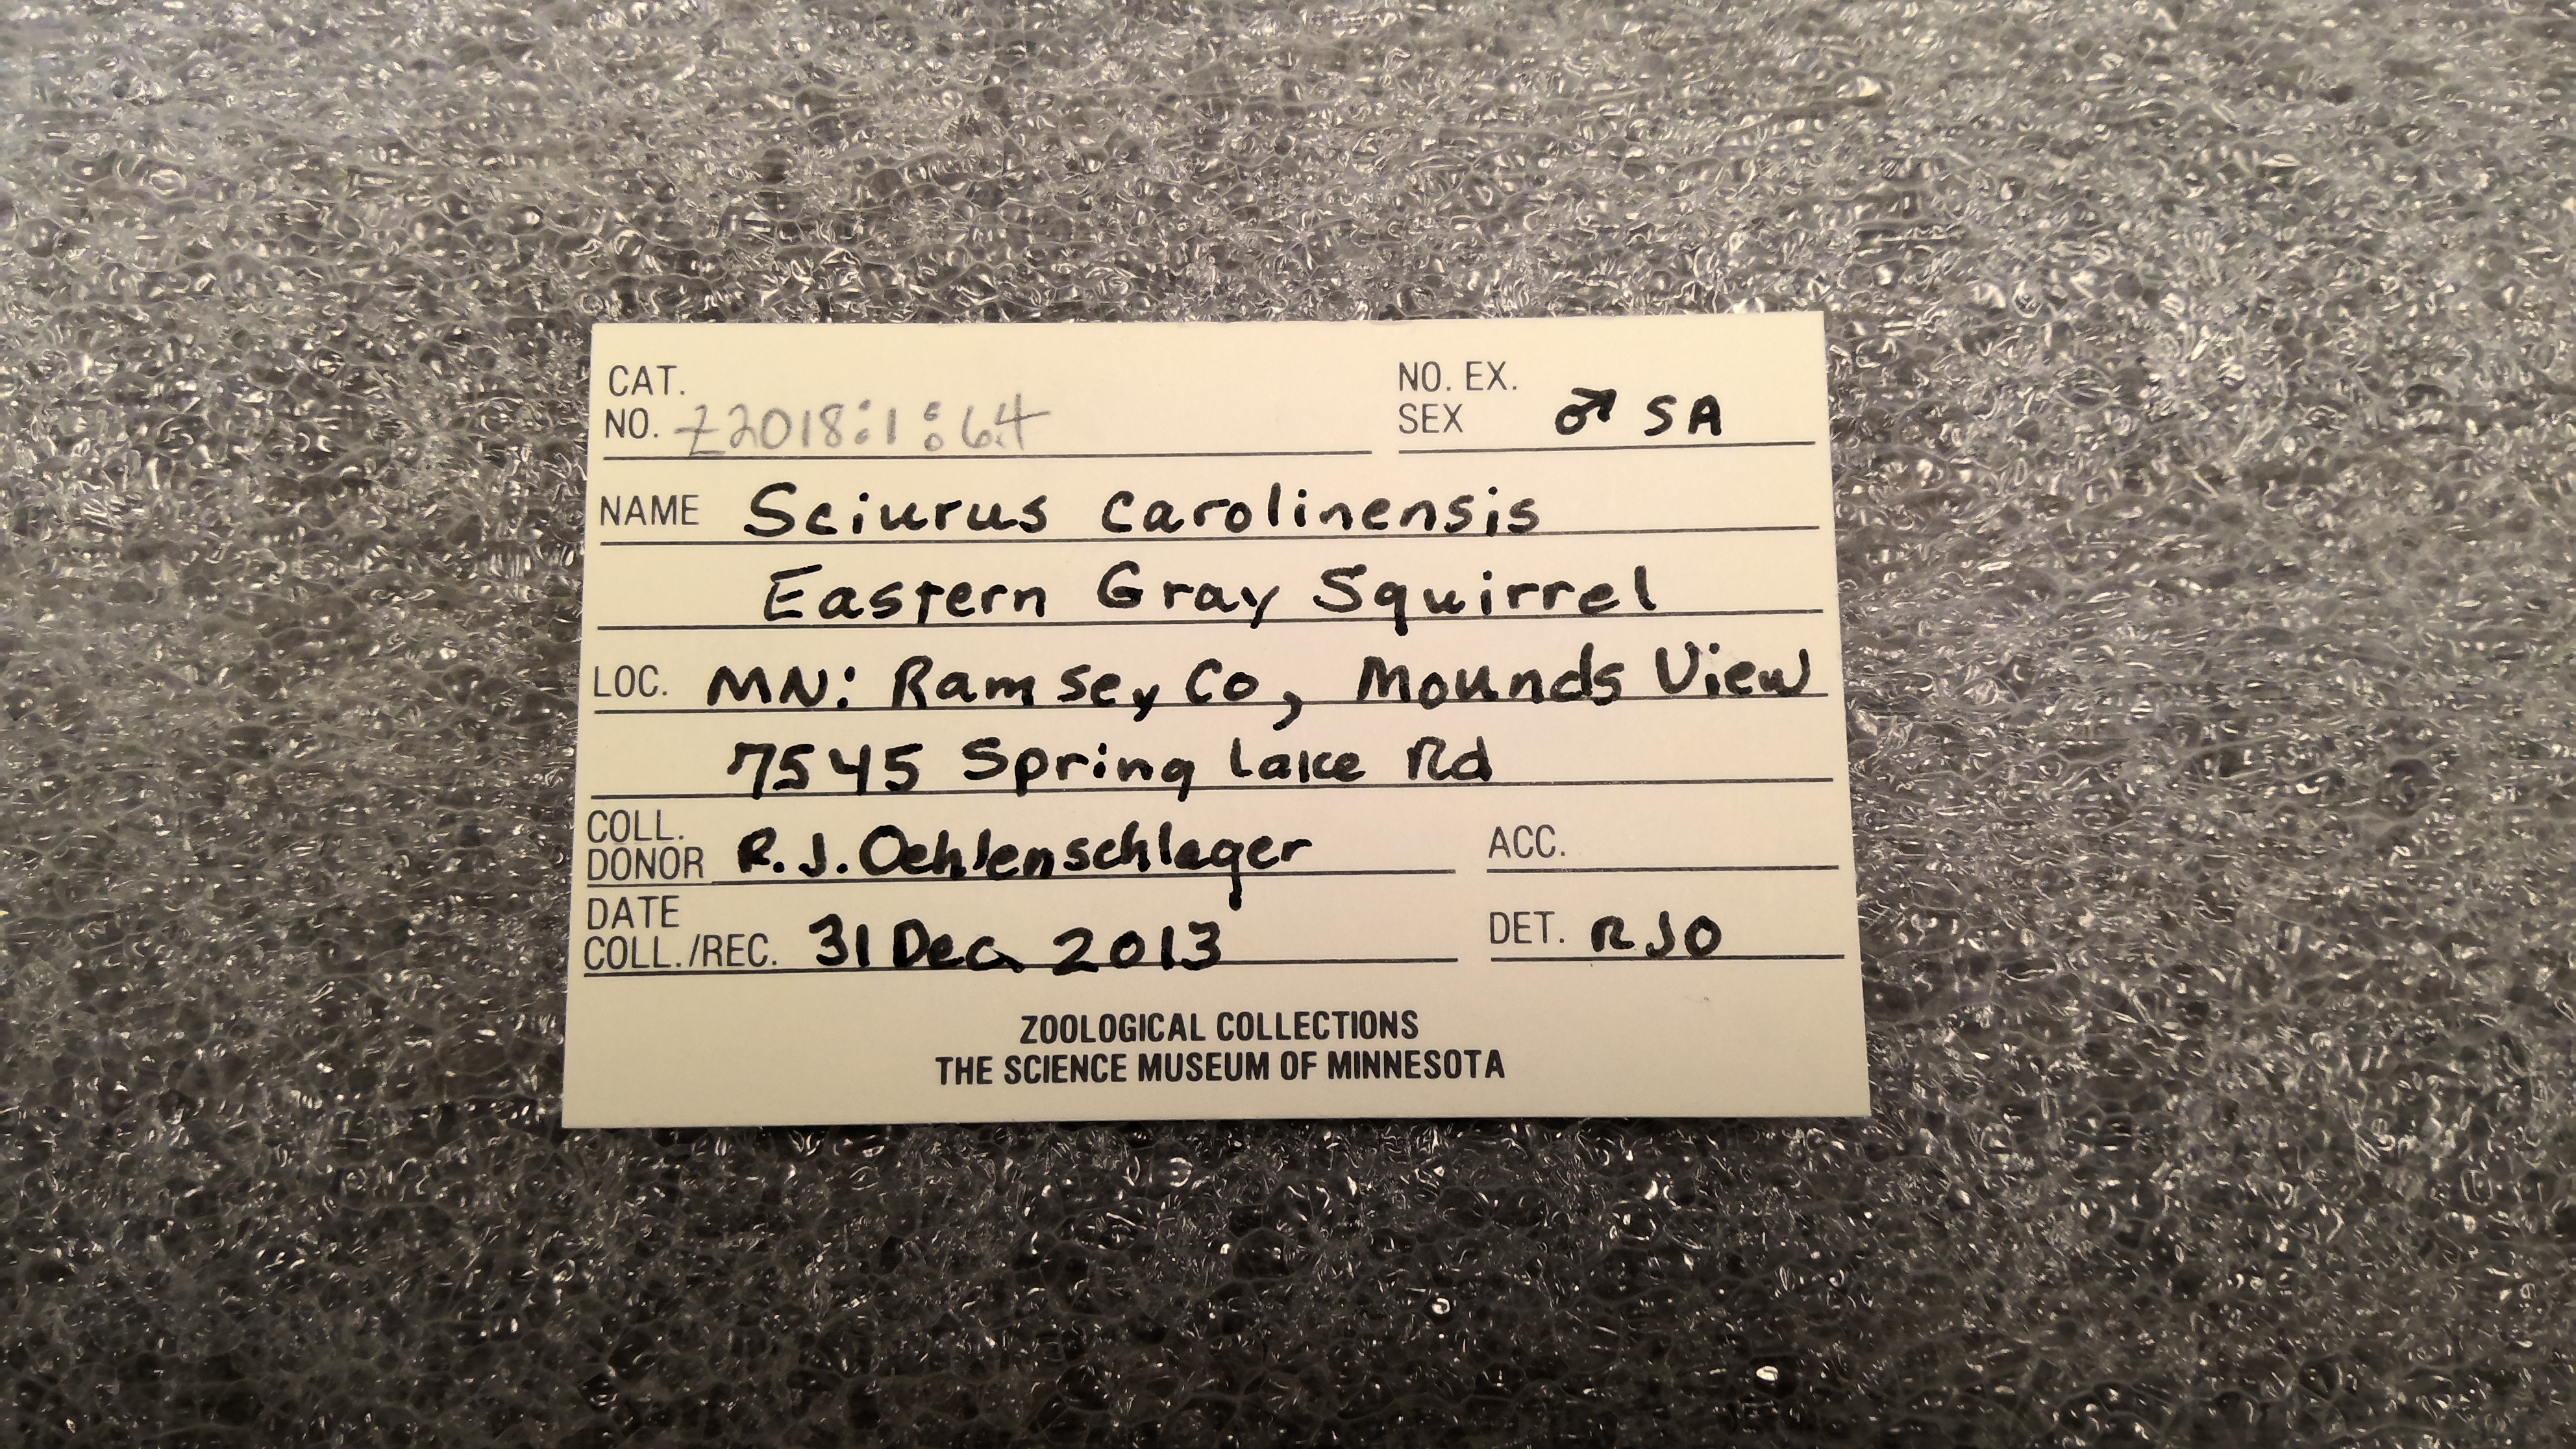 CAT.
NO. Z2018:1:64
NO. EX.
SEX ♂ SA
NAME Sciurus carolinensis
Eastern Gray Squirrel
LOC. MN: Ramsey Co, Mounds View
7545 Spring Lake Rd
COLL.
DONOR R.J. Oehlenschlager
ACC.
DATE
COLL./REC. 31 Dec 2013
DET. RJO
ZOOLOGICAL COLLECTIONS
THE SCIENCE MUSEUM OF MINNESOTA